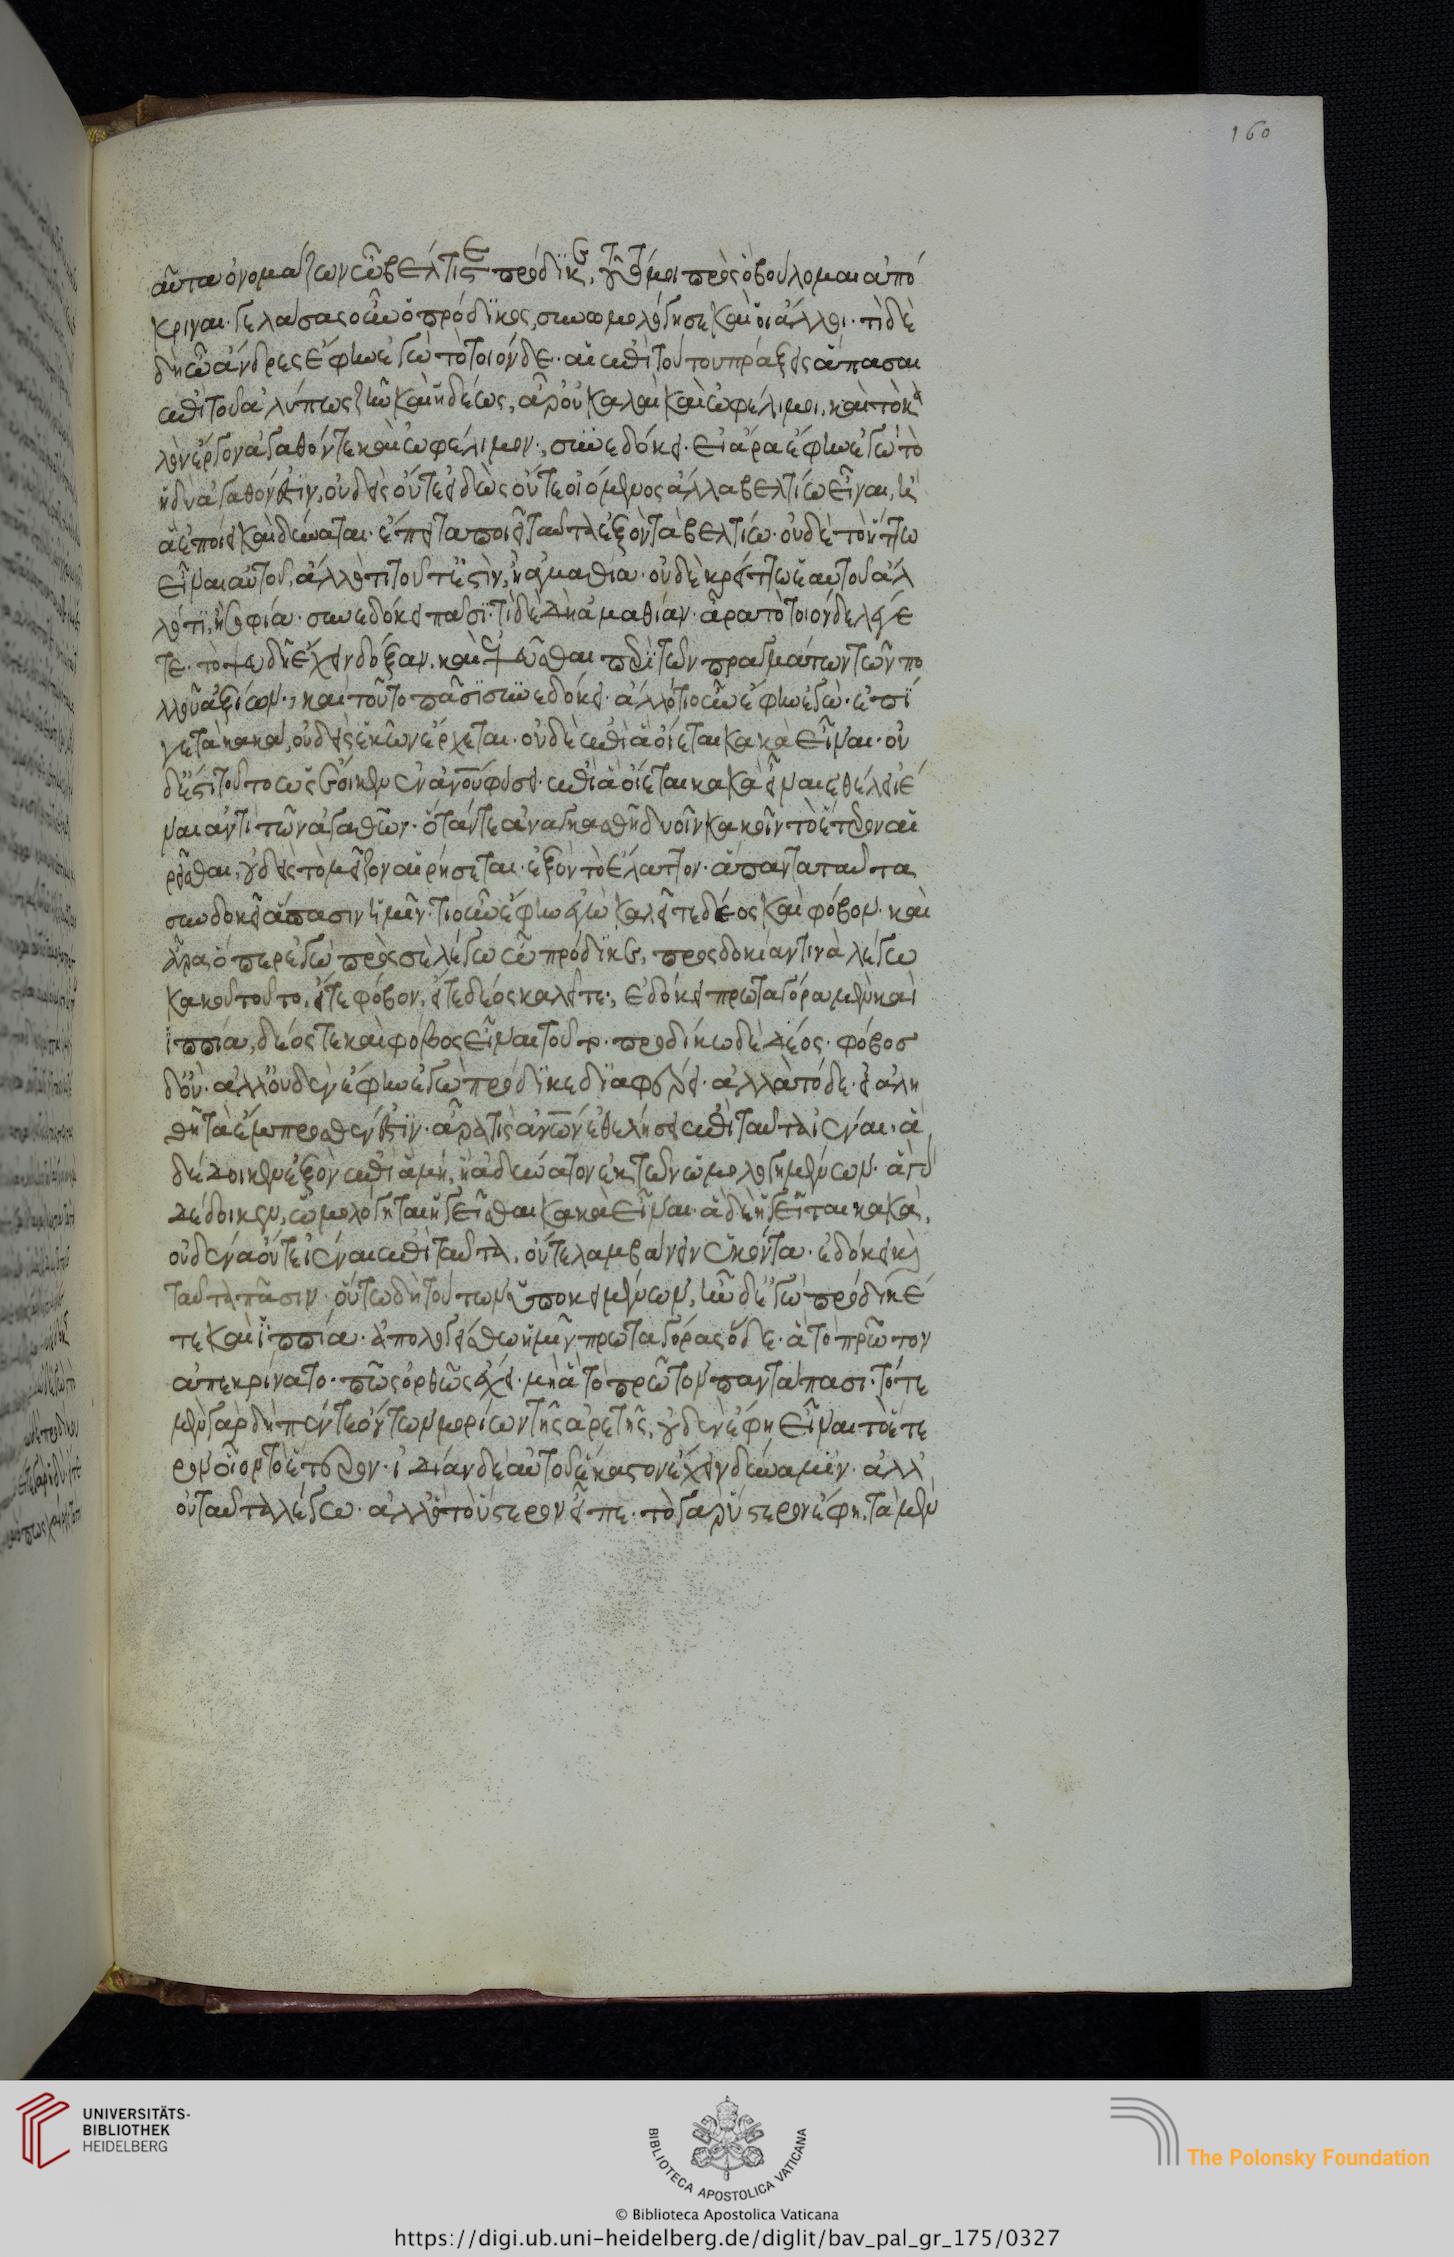 αῦτα ὀνομάζων ὦ βέλτιστε πρόδικε, τοῦτό μοι πρὸς ὃ βούλομαι ἀπό
κριναι. γελάσας οὖν ὁ πρόδικος, συνωμολόγησε καὶ οἱ ἄλλοι. τί δὲ
δὴ ὦ ἄνδρες ἔφην ἐγὼ τὸ τοιόνδε. αἱ ἐπὶ τούτου πράξεις ἅπασαι
ἐπὶ τοῦ ἀλύπως ζῆν καὶ ἡδέως, ἆρ' οὐ καλαὶ καὶ ὠφέλιμοι, καὶ τὸ κα
λὸν ἔργον ἀγαθόν τε καὶ ὠφέλιμον; συνεδόκει. εἰ ἄρα ἔφην ἐγὼ τὸ
ἡδὺ ἀγαθόν ἐστιν, οὐδεὶς οὔτε εἰδὼς οὔτε οἰόμενος ἄλλα βελτίω εἶναι, ἢ
ἃ ἐποίει καὶ δύναται. ἔπειτα ποιεῖ ταῦτα ἐξὸν τὰ βελτίω. οὐδὲ τὸ ἥττω
εἶναι αὑτοῦ, ἄλλό τι τοῦτ' ἐστὶν, ἢ ἀμαθία. οὐδὲ κρείττω ἑαυτοῦ ἄλ
λό τι, ἢ σοφία. συνεδόκει πᾶσι. τί δὲ δὴ ἀμαθίαν. ἆρα τὸ τοιόνδε λέγε
τε. τὸ ψευδῆ ἔχειν δόξαν, καὶ ἐψεῦσθαι περὶ τῶν πραγμάτων τῶν πο
λλοῦ ἀξίων; καὶ τοῦτο πᾶσι συνεδόκει. ἄλλό τι οὖν ἔφην ἐγὼ. ἐπί
γε τὰ κακὰ, οὐδεὶς ἑκὼν ἔρχεται. οὐδὲ ἐπὶ ἃ οἴεται κακὰ εἶναι. οὐ
δ' ἔστι τοῦτο ὡς ἔοικεν ἐν ἀνου φύσει. ἐπὶ ἃ οἴεται κακὰ εἶναι ἐθέλειν ἰέ
ναι ἀντὶ τῶν ἀγαθῶν. ὅταν τε ἀναγκασθῇ δυοῖν κακοῖν τὸ ἕτερον αἱ
ρεῖσθαι, οὐδεὶς τὸ μεῖζον αἱρήσεται. ἐξὸν τὸ ἔλαττον. ἅπαντα ταῦτα
συνδοκεῖ ἅπασιν ἡμῖν. τί οὖν ἔφην ἐγὼ καλεῖτε δέος καὶ φόβον. καὶ
ἆρα ὅπερ ἐγὼ πρὸς σὲ λέγω ὦ πρόδικε, προσδοκίαν τινὰ λέγω
κακοῦ τοῦτο, εἴτε φόβον, εἴτε δέος καλεῖτε; ἐδόκει πρωταγόρα μὲν καὶ
ἱππία, δέος τε καὶ φόβος εἶναι τοῦτο. προδίκω δὲ δέος. φόβος
δ' οὔ. ἀλλ' οὐδὲν ἔφην ἐγὼ πρόδικε διαφέρει. ἀλλὰ τόδε. εἰ ἀλη
θῆ τὰ ἔμπροσθέν ἐστιν. ἆρά τις ἀνων ἐθελήσει ἐπὶ ταῦτα ἰέναι. ἃ
δέδοικεν ἐξὸν ἐπὶ ἃ μή, ἢ ἀδύνατον ἐκ τῶν ὡμολογημένων. ἃ γὰρ
δέδοικεν, ὡμολόγηται ἡγεῖσθαι κακὰ εἶναι. ἃ δὲ ἡγεῖται κακὰ,
οὐδένα οὔτε ἰέναι ἐπὶ ταῦτα, οὔτε λαμβάνειν ἑκόντα. ἐδόκει καὶ
ταῦτα πᾶσιν. οὕτω δὴ τούτων ὑποκειμένων, ἦν δ' ἐγὼ πρόδικέ
τε καὶ ἱππία. ἀπολογείσθω ἡμῖν πρωταγόρας ὅδε. ἃ τὸ πρῶτον
ἀπεκρίνατο. πῶς ὀρθῶς ἔχει. μὴ ἃ τὸ πρῶτον παντάπασι. τότε
μὲν γὰρ δὴ πέντε ὄντων μορίων τῆς ἀρετῆς, οὐδὲν ἔφη εἶναι τὸ ἕτε
ρον οἷον τὸ ἕτερον. ἰδίαν δὲ αὑτοῦ ἕκαστον ἔχειν δύναμιν. ἀλλ'
οὐ ταῦτα λέγω. ἀλλ' ἃ τὸ ὕστερον εἶπε. τὸ γὰρ ὕστερον ἔφη, τὰ μὲν
160
UNIVERSITÄTS-
BIBLIOTHEK
HEIDELBERG
BIBLIOTECA APOSTOLICA VATICANA
The Polonsky Foundation
© Biblioteca Apostolica Vaticana
https://digi.ub.uni-heidelberg.de/diglit/bav_pal_gr_175/0327